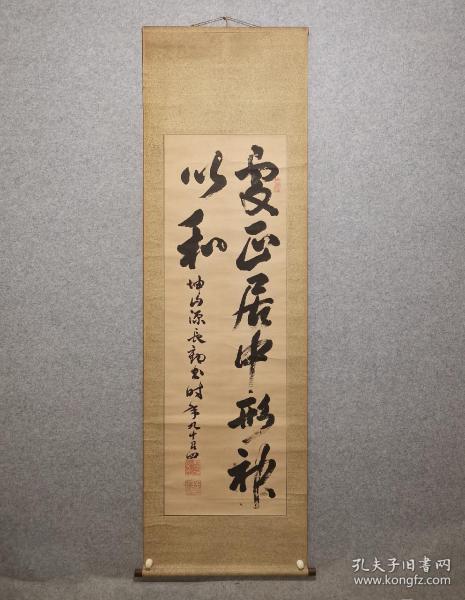 處正居中形神
以和
坤山源長勲書時年九十有四
孔夫子旧书网
www.kongfz.com